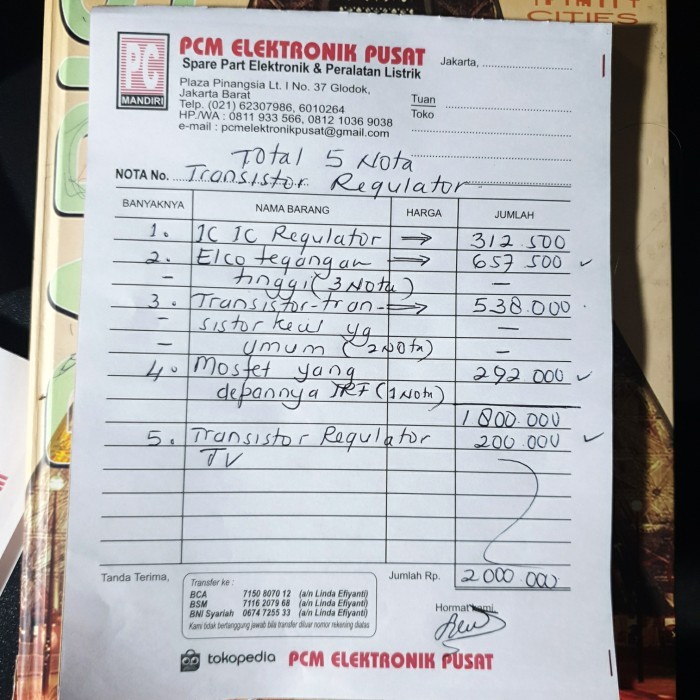 CITIES
PC
MANDIRI
PCM ELEKTRONIK PUSAT
Spare Part Elektronik & Peralatan Listrik
Plaza Pinangsia Lt. I No. 37 Glodok,
Jakarta Barat
Telp. (021) 62307986, 6010264
HP./WA : 0811 933 566, 0812 1036 9038
e-mail : pcmelektronikpusat@gmail.com
Jakarta,
Tuan
Toko
Total 5 Nota
NOTA No. Transistor Regulator
BANYAKNYA NAMA BARANG HARGA JUMLAH
1. IC IC Regulator → 312.500
2. Elco tegangan → 657.500 ✓
– tinggi (3 Nota) –
3. Transistor-tran- → 538.000
– sistor kecil yg –
– umum (2 Nota) –
4. Mosfet yang 292.000 ✓
depannya IRF (1 Nota)
1800.000
5. Transistor Regulator 200.000 ✓
TV
Tanda Terima,
Jumlah Rp. 2000.000
Transfer ke :
BCA 7150 8070 12 (a/n Linda Efiyanti)
BSM 7116 2079 68 (a/n Linda Efiyanti)
BNI Syariah 0674 7255 33 (a/n Linda Efiyanti)
Kami tidak bertanggung jawab bila transfer diluar nomor rekening diatas
Hormat kami
tokopedia PCM ELEKTRONIK PUSAT